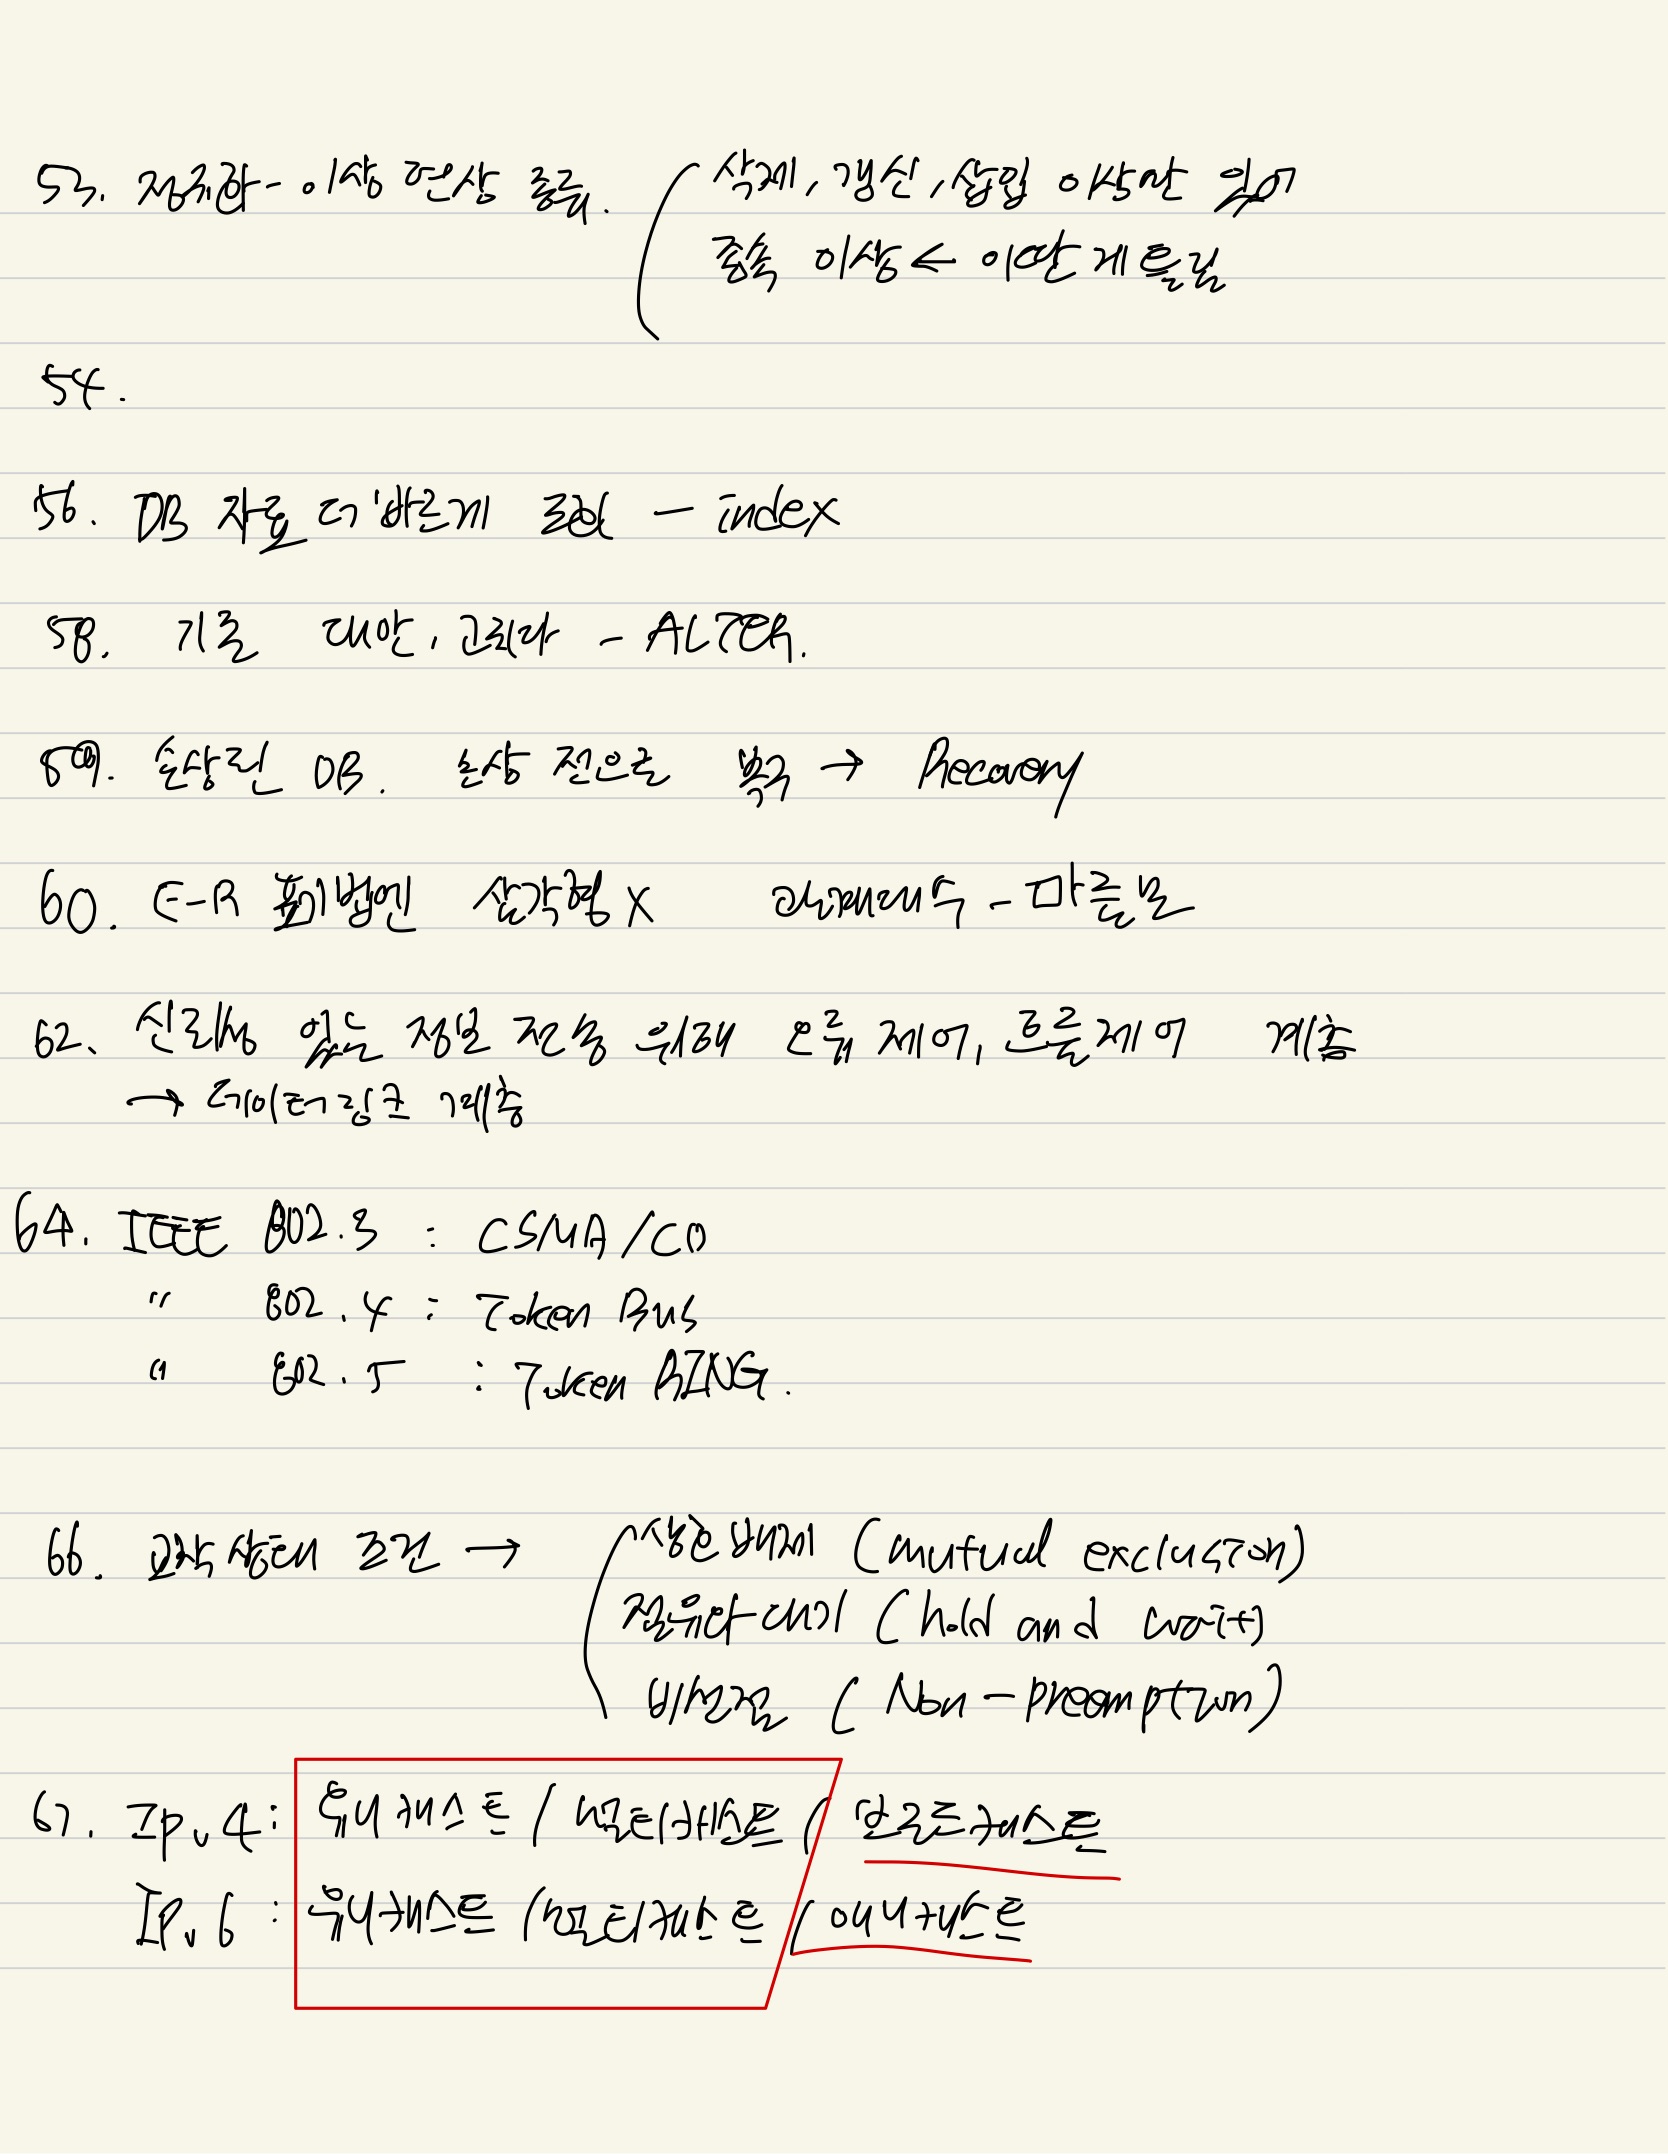 53. 정규화 - 이상 현상 종류. 삭제, 갱신, 삽입 이상만 있어
종속 이상 ← 이딴 게 틀림
54.
56. DB 자료 더 빠르게 조회 - index
58. 기존 대안, 고치다 - ALTER.
59. 손상된 DB. 손상 전으로 복구 → Recovery
60. E-R 표기법엔 삼각형 X 관계대수 - 마름모
62. 신뢰성 있는 정보 전송 위해 오류 제어, 흐름제어 계층
→ 데이터링크 계층
64. IEEE 802.3 : CSMA/CD
" 802.4 : Token Bus
" 802.5 : Token RING.
66. 교착 상태 조건 → 상호 배제 (mutual exclusion)
점유와 대기 (hold and wait)
비선점 (Non-preemption)
67. IPv4: 유니캐스트 / 멀티캐스트 / 브로드캐스트
IPv6 : 유니캐스트 / 멀티캐스트 / 애니캐스트